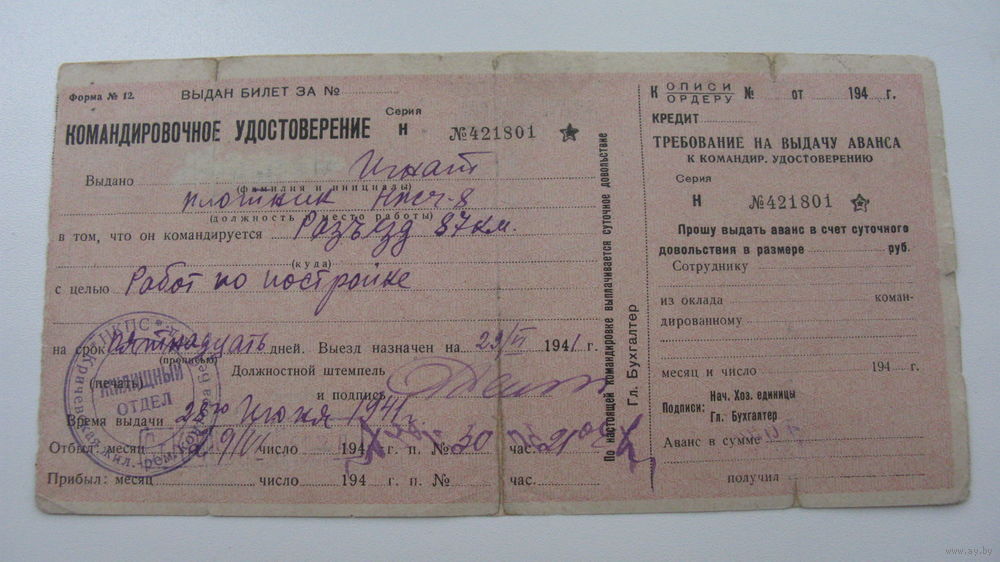 Форма № 12.
ВЫДАН БИЛЕТ ЗА №
КОМАНДИРОВОЧНОЕ УДОСТОВЕРЕНИЕ
Серия
Н
№421801
Выдано Игнат
(фамилия и инициалы)
плотник НПСЧ-8
(должность и место работы)
в том, что он командируется Разъезд 87 км.
(куда)
с целью Работ по постройке
на срок Пятнадцать дней. Выезд назначен на 29/VI 1941 г.
(прописью)
(печать)
Должностной штемпель
и подпись
Время выдачи 28го Июня 1941 г.
Отбыл: месяц 29/VI число 194 г. п. № 30 час. 21
Прибыл: месяц число 194 г. п. № час.
НКПС
ЖИЛИЩНЫЙ
ОТДЕЛ
Кричевская жил.-рем. контора
По настоящей командировке выплачивается суточное довольствие
Гл. Бухгалтер
К ОПИСИ
ОРДЕРУ № от 194 г.
КРЕДИТ
ТРЕБОВАНИЕ НА ВЫДАЧУ АВАНСА
К КОМАНДИР. УДОСТОВЕРЕНИЮ
Серия
Н
№421801
Прошу выдать аванс в счет суточного
довольствия в размере руб.
Сотруднику
из оклада коман-
дированному
месяц и число 194 г.
Подписи:
Нач. Хоз. единицы
Гл. Бухгалтер
Аванс в сумме
получил
www.ay.by